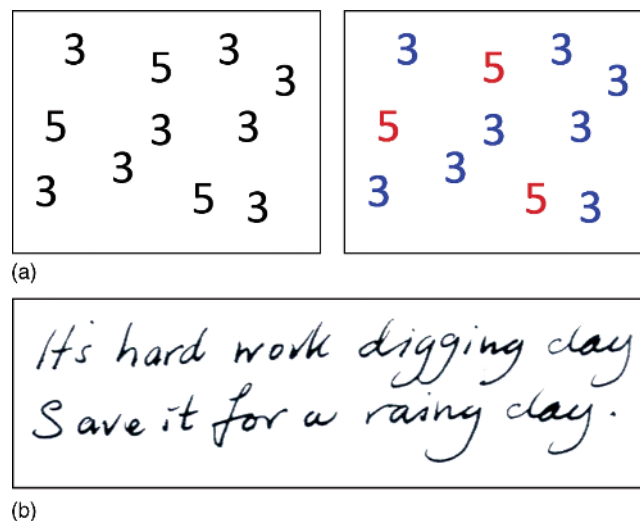 3 5 3 3 5 3 3 3 3 5 3
3 5 3 3 5 3 3 3 3 5 3
(a)
It's hard work digging clay
Save it for a rainy day.
(b)